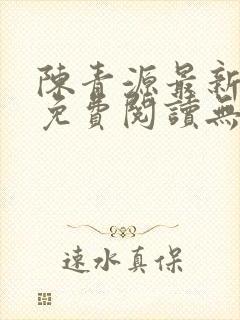 陳青源最新
免費閱讀無
速水真保